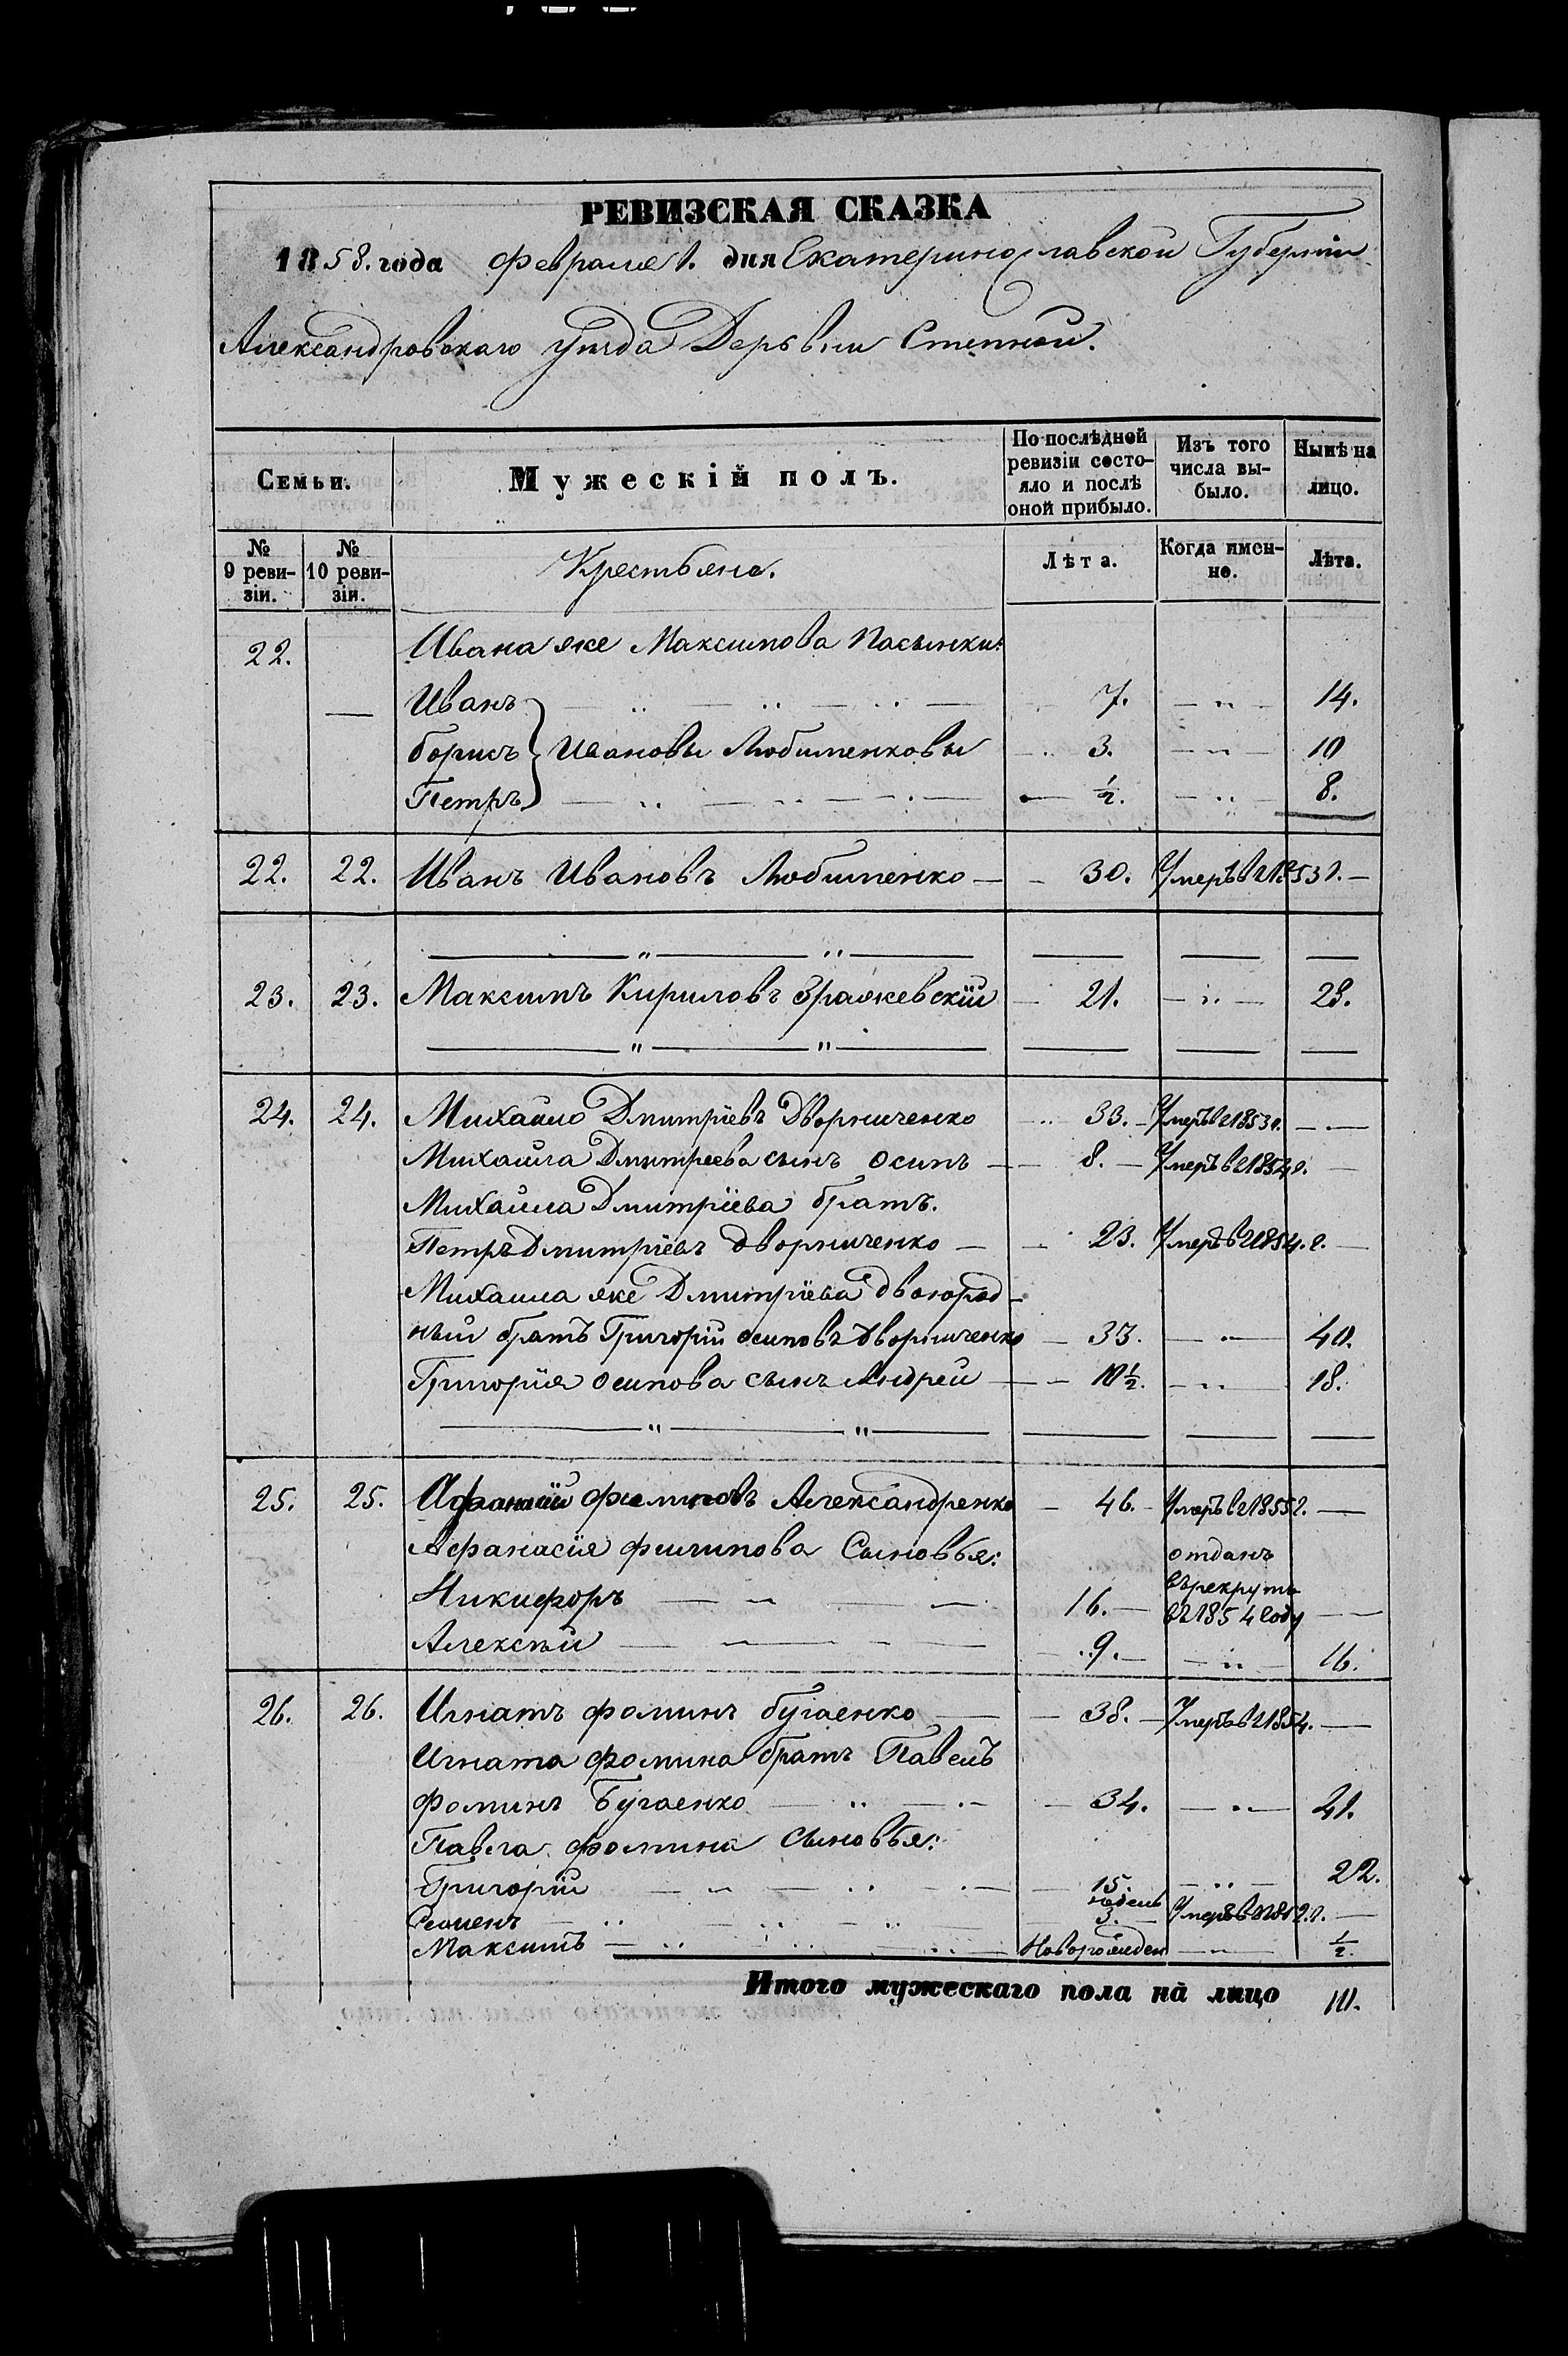 РЕВИЗСКАЯ СКАЗКА
1858. года Февраля 1. дня Екатеринославской Губернiи
Александровскаго уѣзда Деревни Степной.
Семьи.
Мужескій полъ.
По послѣдней ревизіи состо-яло и послѣ оной прибыло.
Изъ того числа вы-было.
Нынѣ на лицо.
№ 9 реви-зіи.
№ 10 реви-зіи.
Крестьяне.
Лѣта.
Когда имен-но.
Лѣта.
22. Ивана же Максимова пасынки:
— Иванъ 7. 14.
Борисъ } Ивановы Любименковы 3. 10
Петръ ½. 8.
22. 22. Иванъ Ивановъ Любименко — 30. Умеръ в 1853 г. —
23. 23. Максимъ Кириловъ Зражевскій — 21. — 28.
24. 24. Михайло Дмитріевъ Дворниченко 33. Умеръ въ 1853 г. —
Михайла Дмитреева сынъ Осипъ — 8. — Умеръ въ 1854 г. —
Михайла Дмитріева братъ.
Петръ Дмитріевъ Дворниченко — 23. Умеръ въ 1854. г. —
Михаила же Дмитріева двоюрод-
ный братъ Григорій Осиповъ Дворниченко — 33. — 40.
Григорія Осипова сынъ Андрей — 10½. — 18.
25. 25. Афанасій Филиповъ Александренко — 46. — Умеръ въ 1855 г. —
Афанасія Филипова Сыновья:
Никифоръ 16. — отданъ въ рекруты въ 1854 году —
Алексѣй 9. — 16.
26. 26. Игнатъ Фоминъ Бугаенко — 38. — Умеръ въ 1854. —
Игната Фомина братъ Павелъ
Фоминъ Бугаенко — 34. — 41.
Павла Фомина Сыновья:
Григорій 15. 22.
Семенъ недель 3. — Умеръ въ 1852. г. —
Максимъ Новорожден — ½.
Итого мужескаго пола на лицо 10.